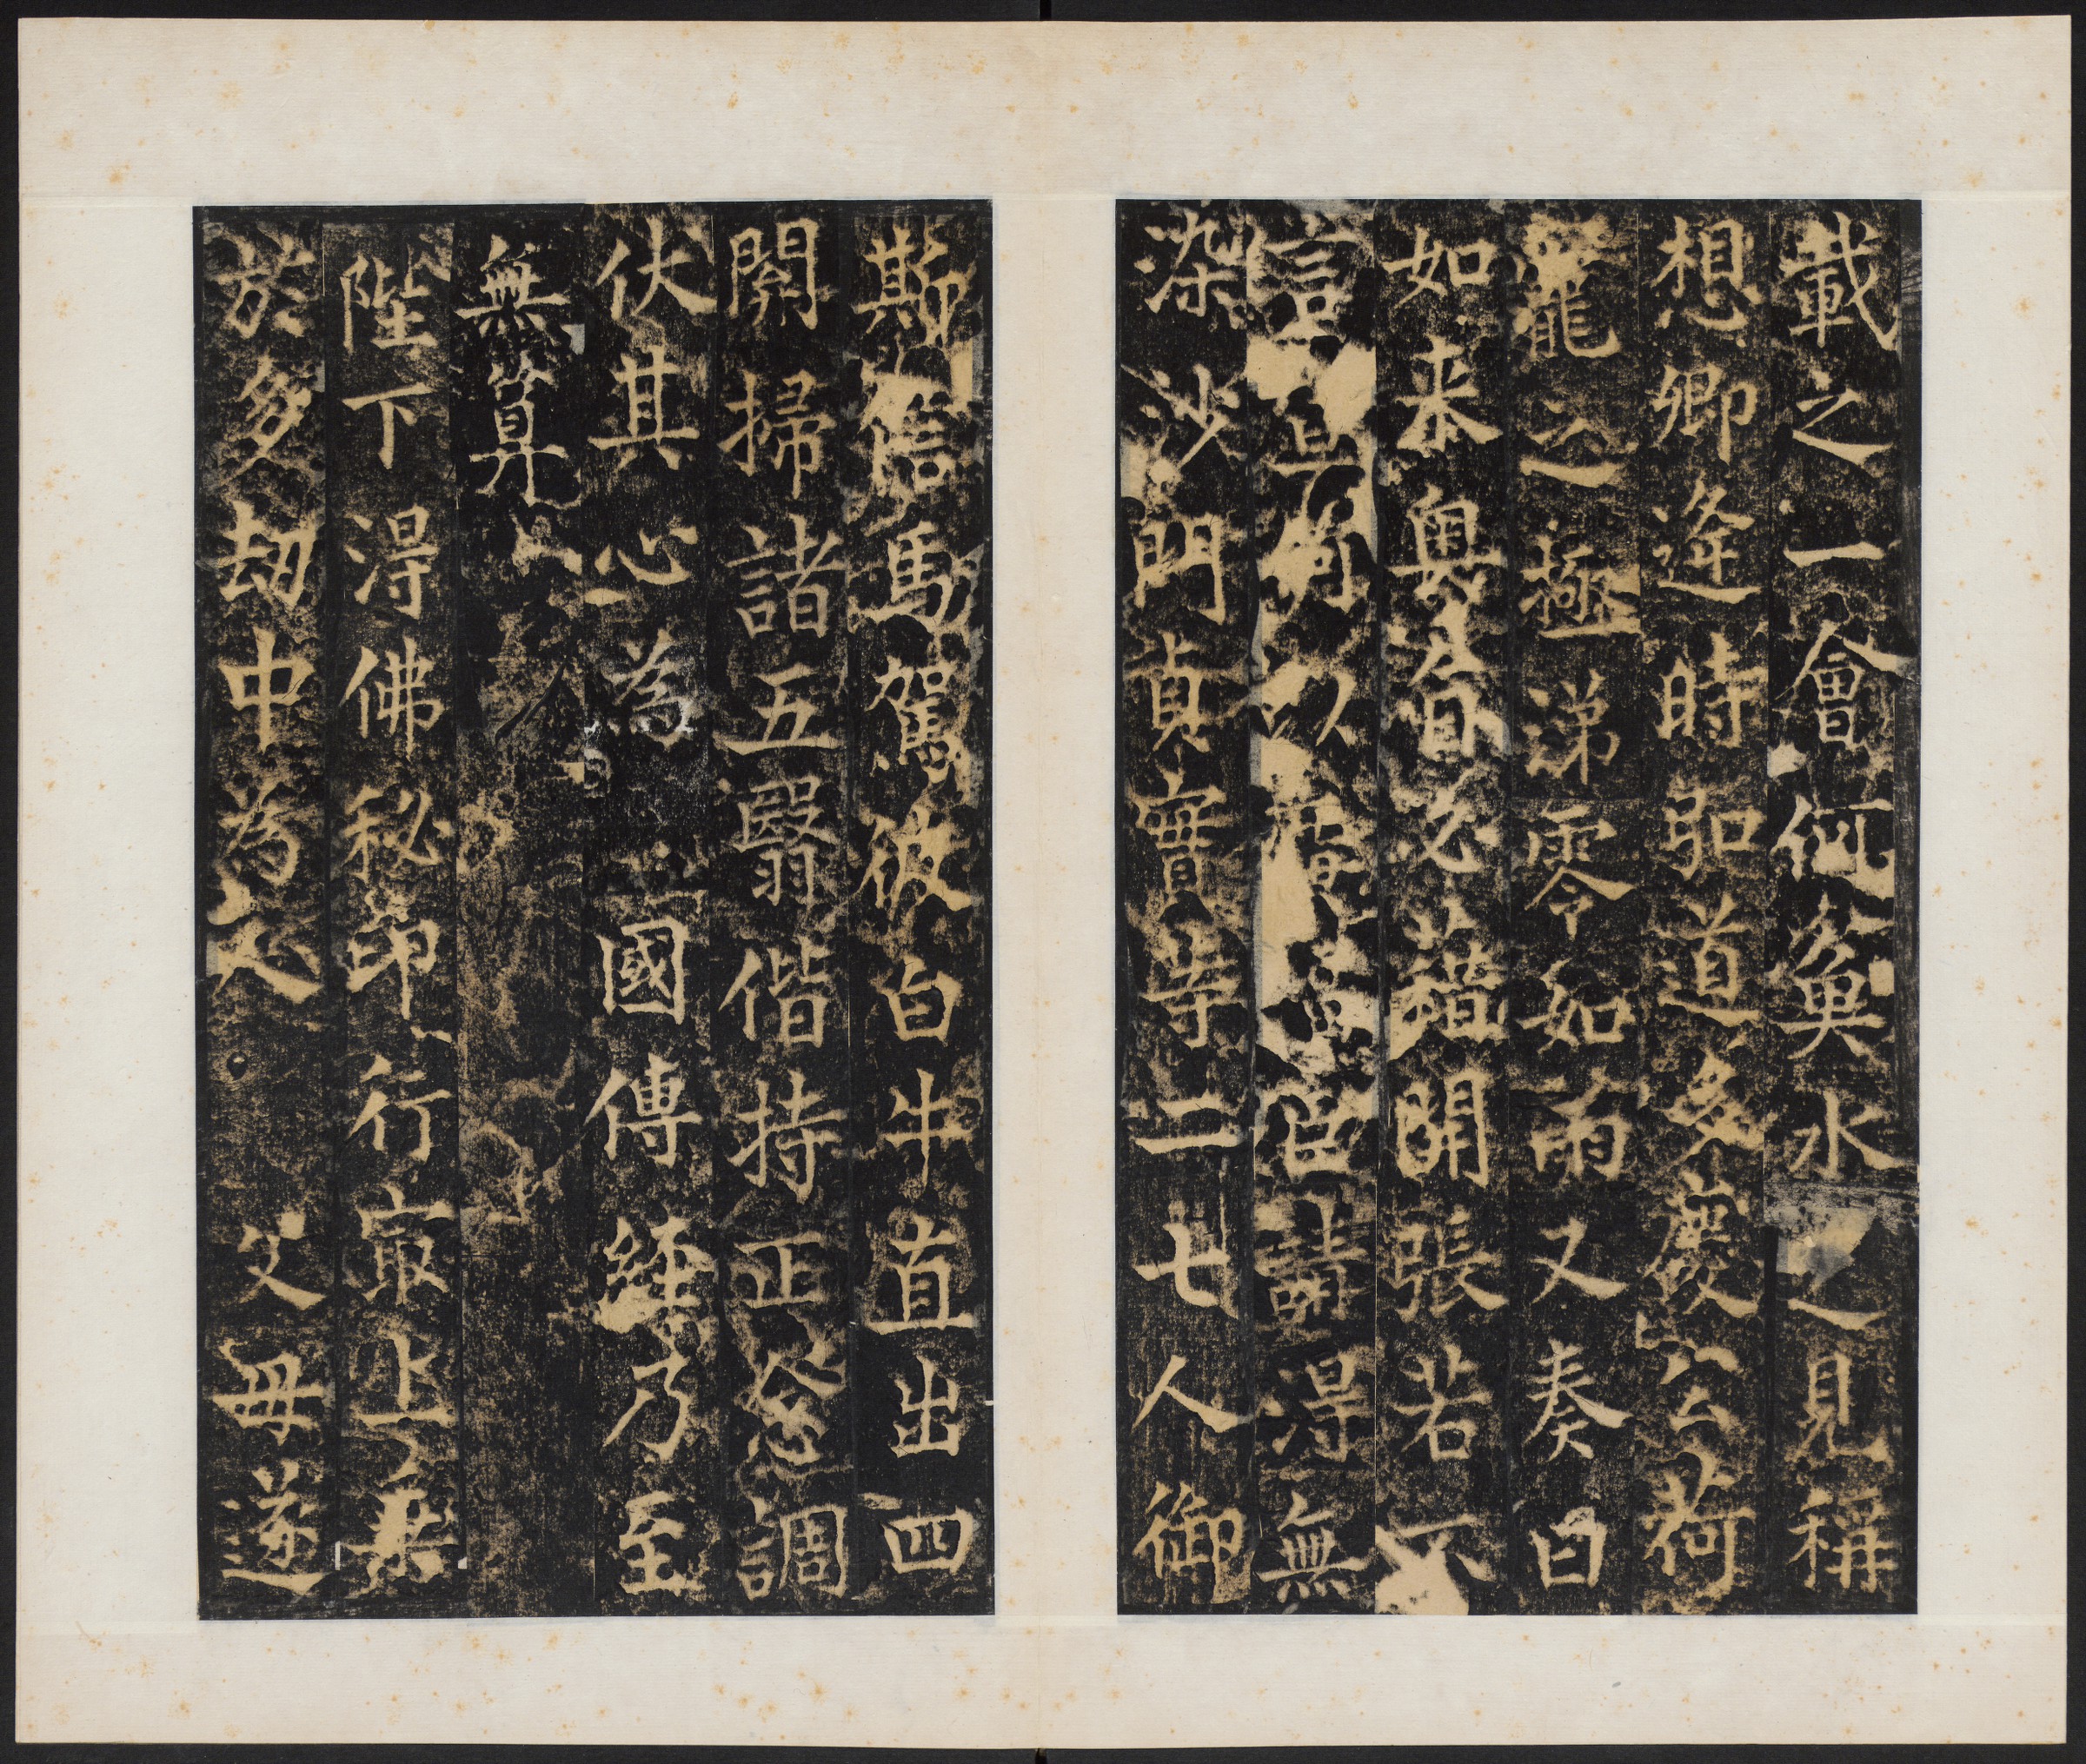 載之一會何冀水之見稱
想卿逢時聖道多慶公荷
寵之極涕零如雨又奏曰
如来奥旨必藉開張若不
言具何以臣請得無
染沙門貞實等二七人御
斯信馬駕彼白牛直出四
關掃諸五翳偕持正念調
伏其心為 國傳経乃至
無算
陛下得佛秘印行最上乗
於多劫中為人 父母遂